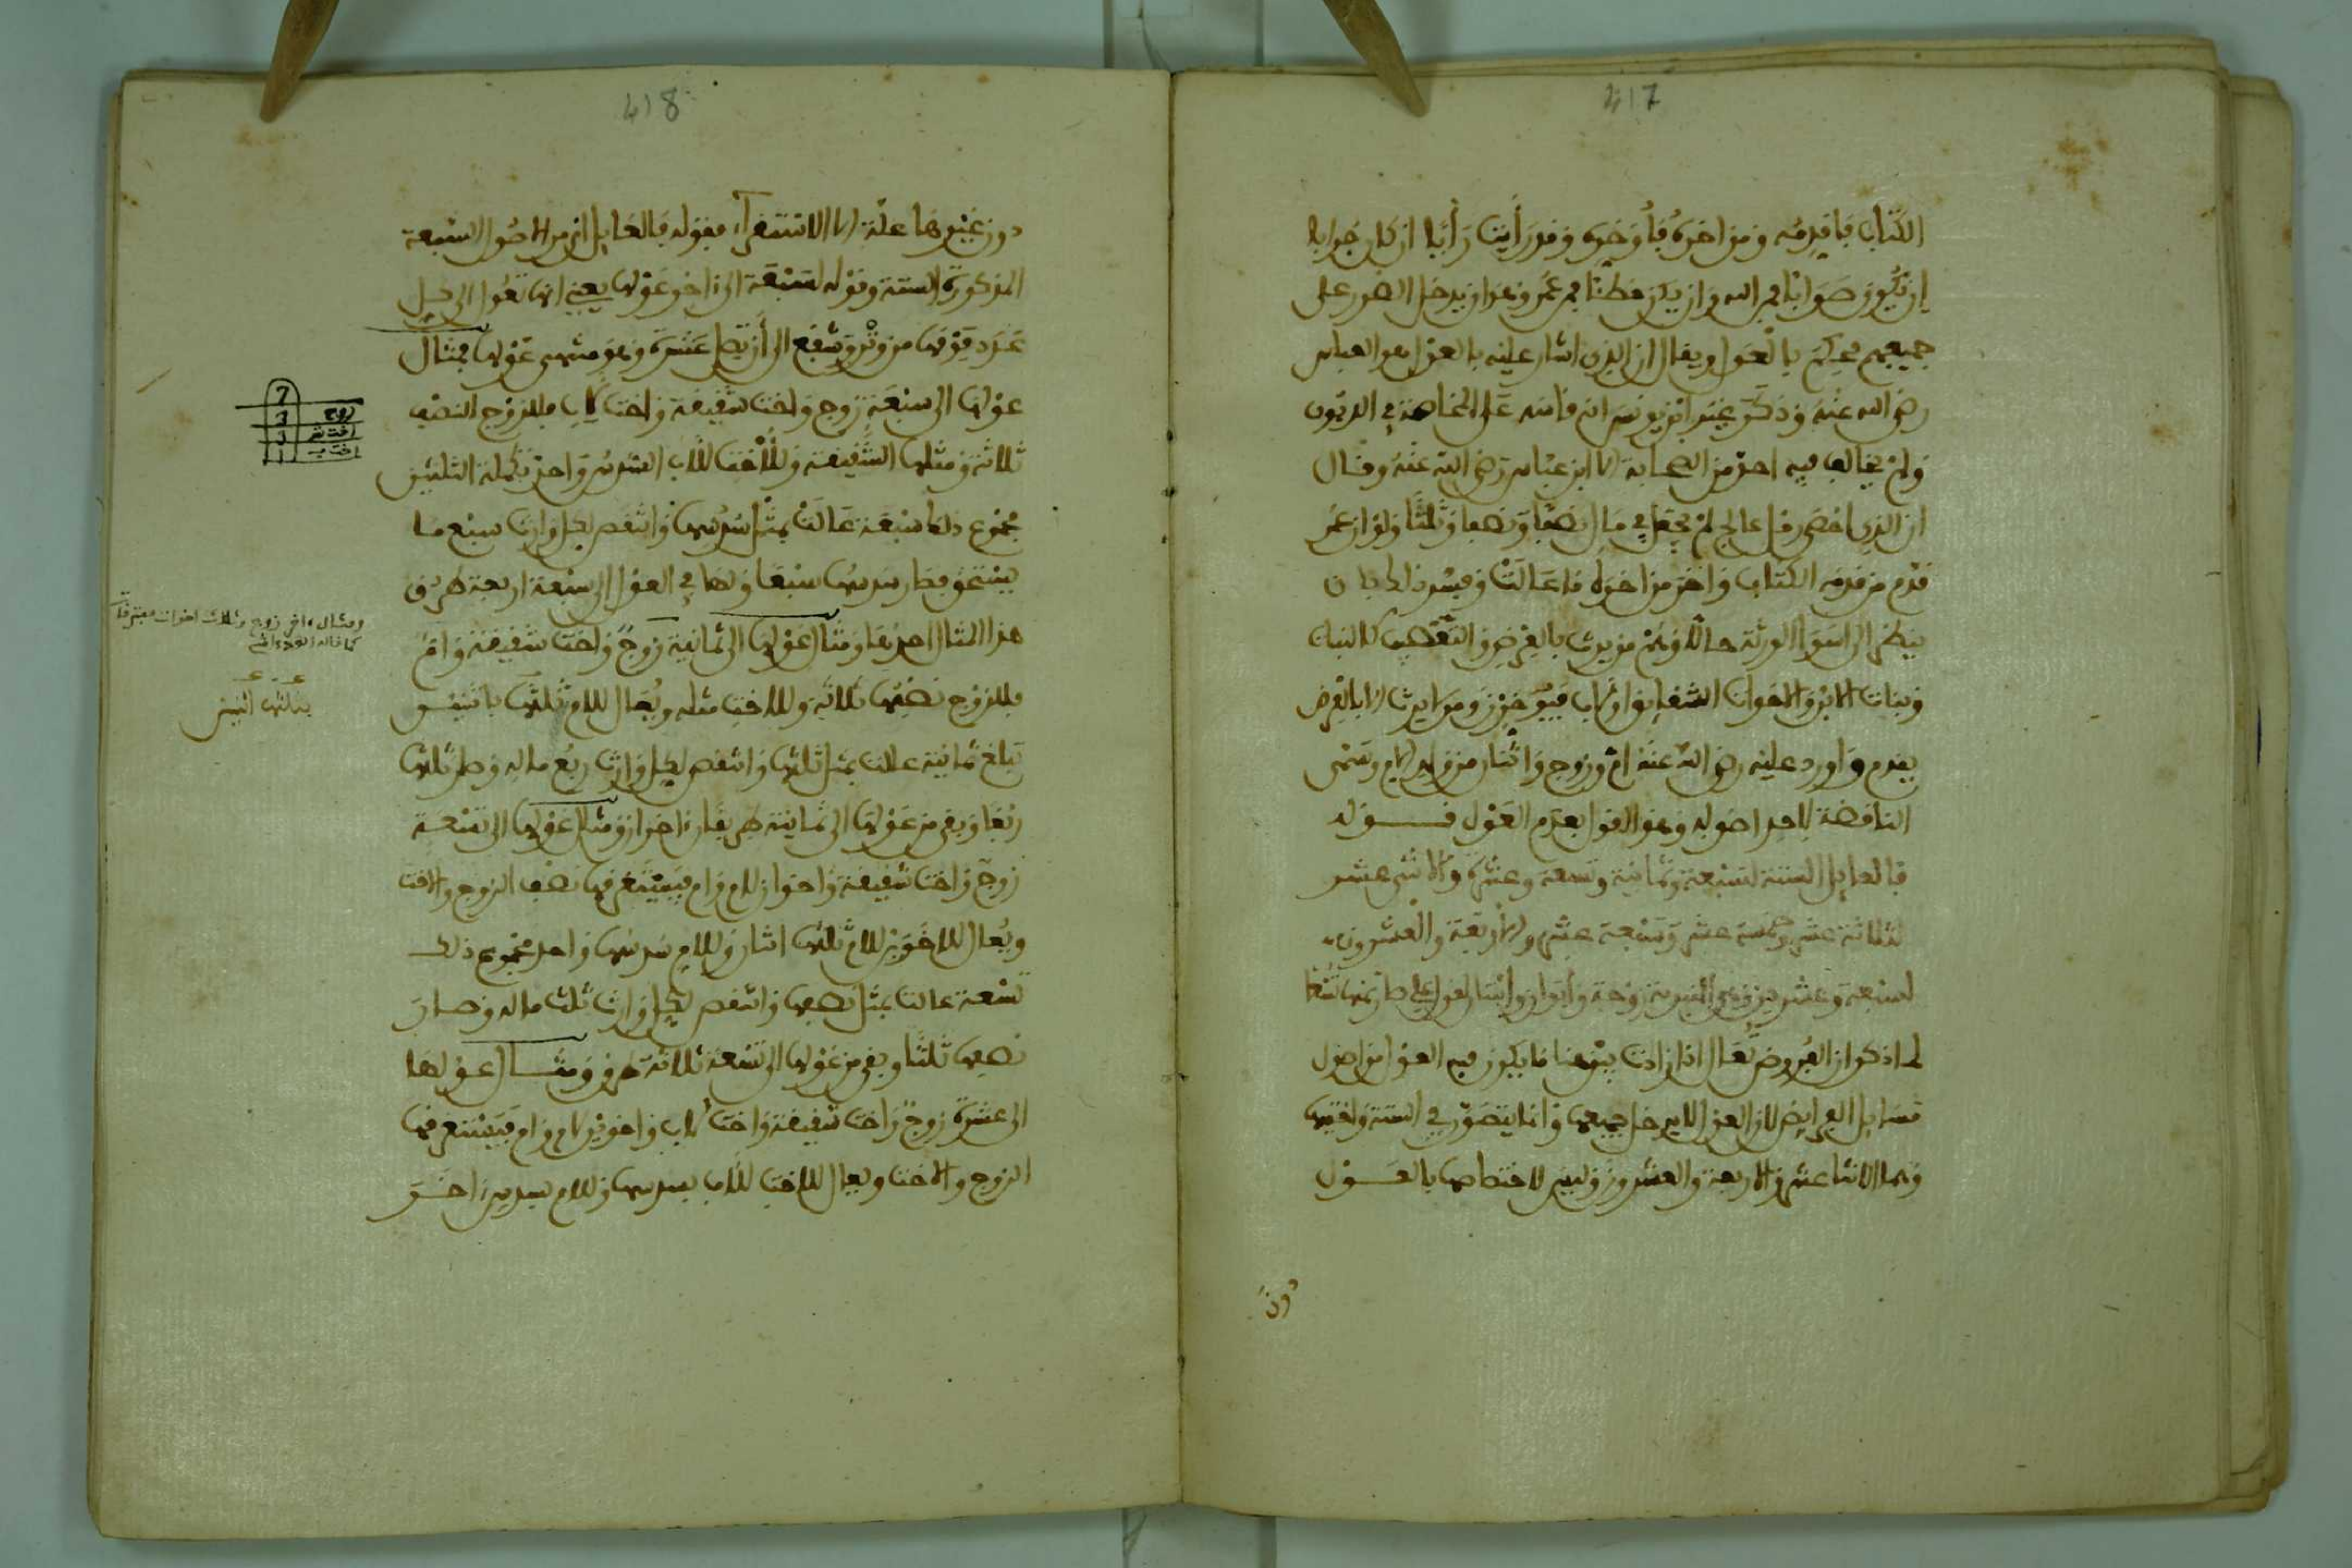 417
الكتاب فأقدمه ومن اخره فأوخره وقد رأيت رأيا ان كان جوابا
ان يكون صوابا فمن الله وان يكن خطئا فمن عمر وهو ان يدخل الضرر على
جميعهم فحكم بالعول ويقال ان الذي اشار عليه بالعول هو العباس
رضي الله عنه وذكر غير ابن يونس انه قاسه على المحاصة في الديون
ولم يخالف فيه احد من الصحابة الا ابن عباس رضي الله عنه وقال
ان الذي احصى رمل عالج لم يجعل في مال نصفا ونصفا وثلثا ولو ان عمر
قدم من قدمه الكتاب واخر من اخره ما عالت وفسر ذلك بان
ينظر الى اسوا الورثة حالا وهم من يرث بالفرض والتعصيب كالبنات
وبنات الابن والاخوات الشقايق او لاب فيوخرن ومن لا يرث الا بالفرض
يقدم واورد عليه رضي الله عنه ام وزوج واثنان من ولد الام وتسمى
الناقضة لاحد اصوله وهو القول بعدم العول قوله
فالعايل الستة لسبعة وثمانية وتسعة وعشرة والاثنى عشر
لثلاثة عشر وخمسة عشر وسبعة عشر والاربعة والعشرون
لسبعة وعشرين وهي المنبرية زوجة وأبوان وابنتان لقول علي صار ثمنها تسعا
لما ذكر ان الفروض تعال اذا زادت بين هنا ما يكون فيه العول من اصول
مسايل الفرايض لان العول لا يدخل جميعها وانما يتصور في الستة وضعفها
وهما الاثنا عشر والاربعة والعشرون وليس لاختصاص بالعول
دون
418
دون غيرها علة الا الاستقراء فقوله فالعايل اي من الاصول السبعة
المذكورة الستة وقوله لسبعة الى اخر عولها يعني انها تعول الى كل
عدد فوقها من وتر وشفع الى أن تصل عشرة وهو منتهى عولها فمثال
عولها الى سبعة زوج واخت شقيقة واخت لاب فللزوج النصف
ثلاثة ومثلها الشقيقة وللأخت للاب السدس واحد تكملة الثلثين
مجموع ذلك سبعة عالت بمثل سدسها وانتقص لكل وارث سبع ما
بيده فصار سدسه سبعا ولها في العول الى سبعة اربعة طرق
هذا المثال احدها ومثال عولها الى ثمانية زوج واخت شقيقة وام
فللزوج نصفها ثلاثة وللاخت مثله ويعال للام ثلثها باثنين
تبلغ ثمانية عالت بمثل ثلثها وانتقص لكل وارث ربع ماله وصار ثلثها
ربعا وبقي من عولها الى ثمانية طريقان اخران ومثال عولها الى تسعة
زوج واخت شقيقة واخوان لام وام فيستغرقها نصف الزوج والاخت
ويعال للاخوين للام ثلثها اثنان وللام سدسها واحد مجموع ذلك
تسعة عالت بمثل نصفها وانتقص لكل وارث ثلث ماله وصار
نصفها ثلثا وبقي من عولها الى تسعة ثلاثة طرق ومثال عولها
الى عشرة زوج واخت شقيقة واخت لاب واخوين لام وام فيستغرقها
الزوج والاخت ويعال للاخت للاب بسدسها وللام بسدس اخر
7
زوج 3
اخت شق 3
اخت ب 1
ومثال اخر زوج وثلاث اخوات مفترقات
كما قاله
بثلثها اثنين